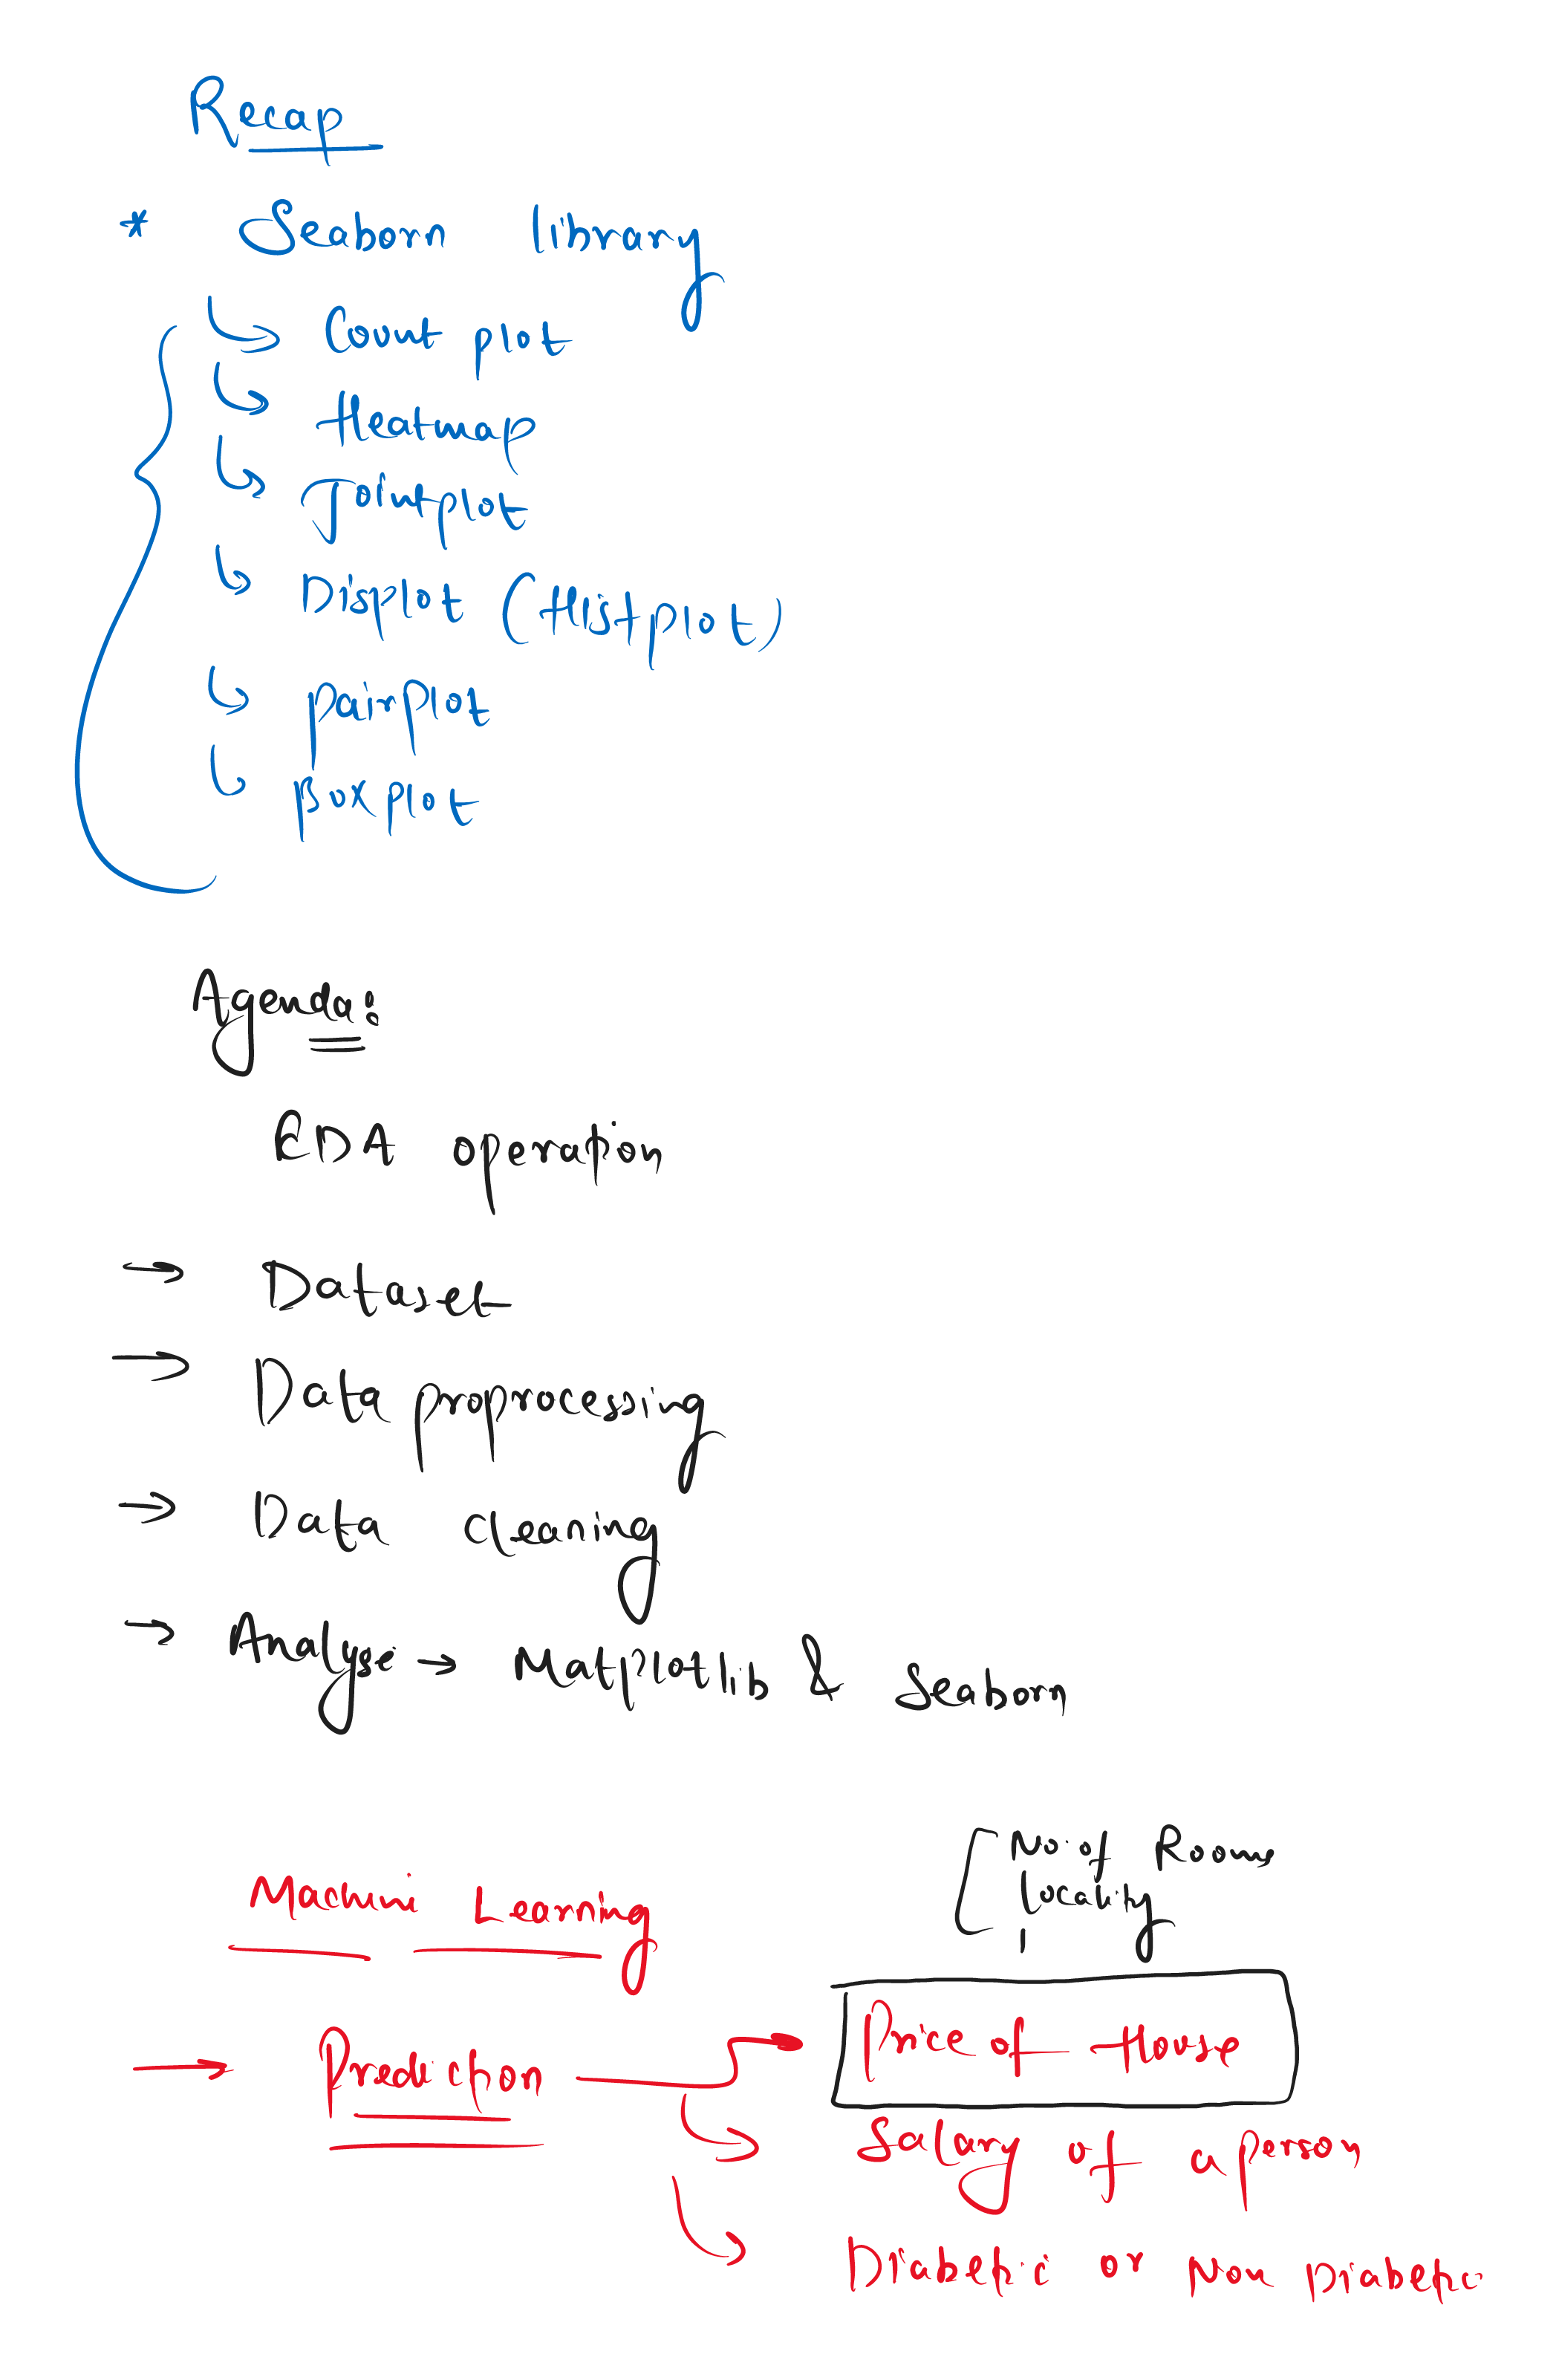 Recap
* Seaborn library
Count plot
Heatmap
Jointplot
Displot (Histplot)
pairplot
Boxplot
Agenda:
EDA operation
→ Dataset
→ Data proprocessing
→ Data cleaning
→ Analyse → Matplotlib & Seaborn
No. of Rooms
Locality
Machine Learning
Price of House
→ Prediction
Salary of a person
Diabetic or Non Diabetic